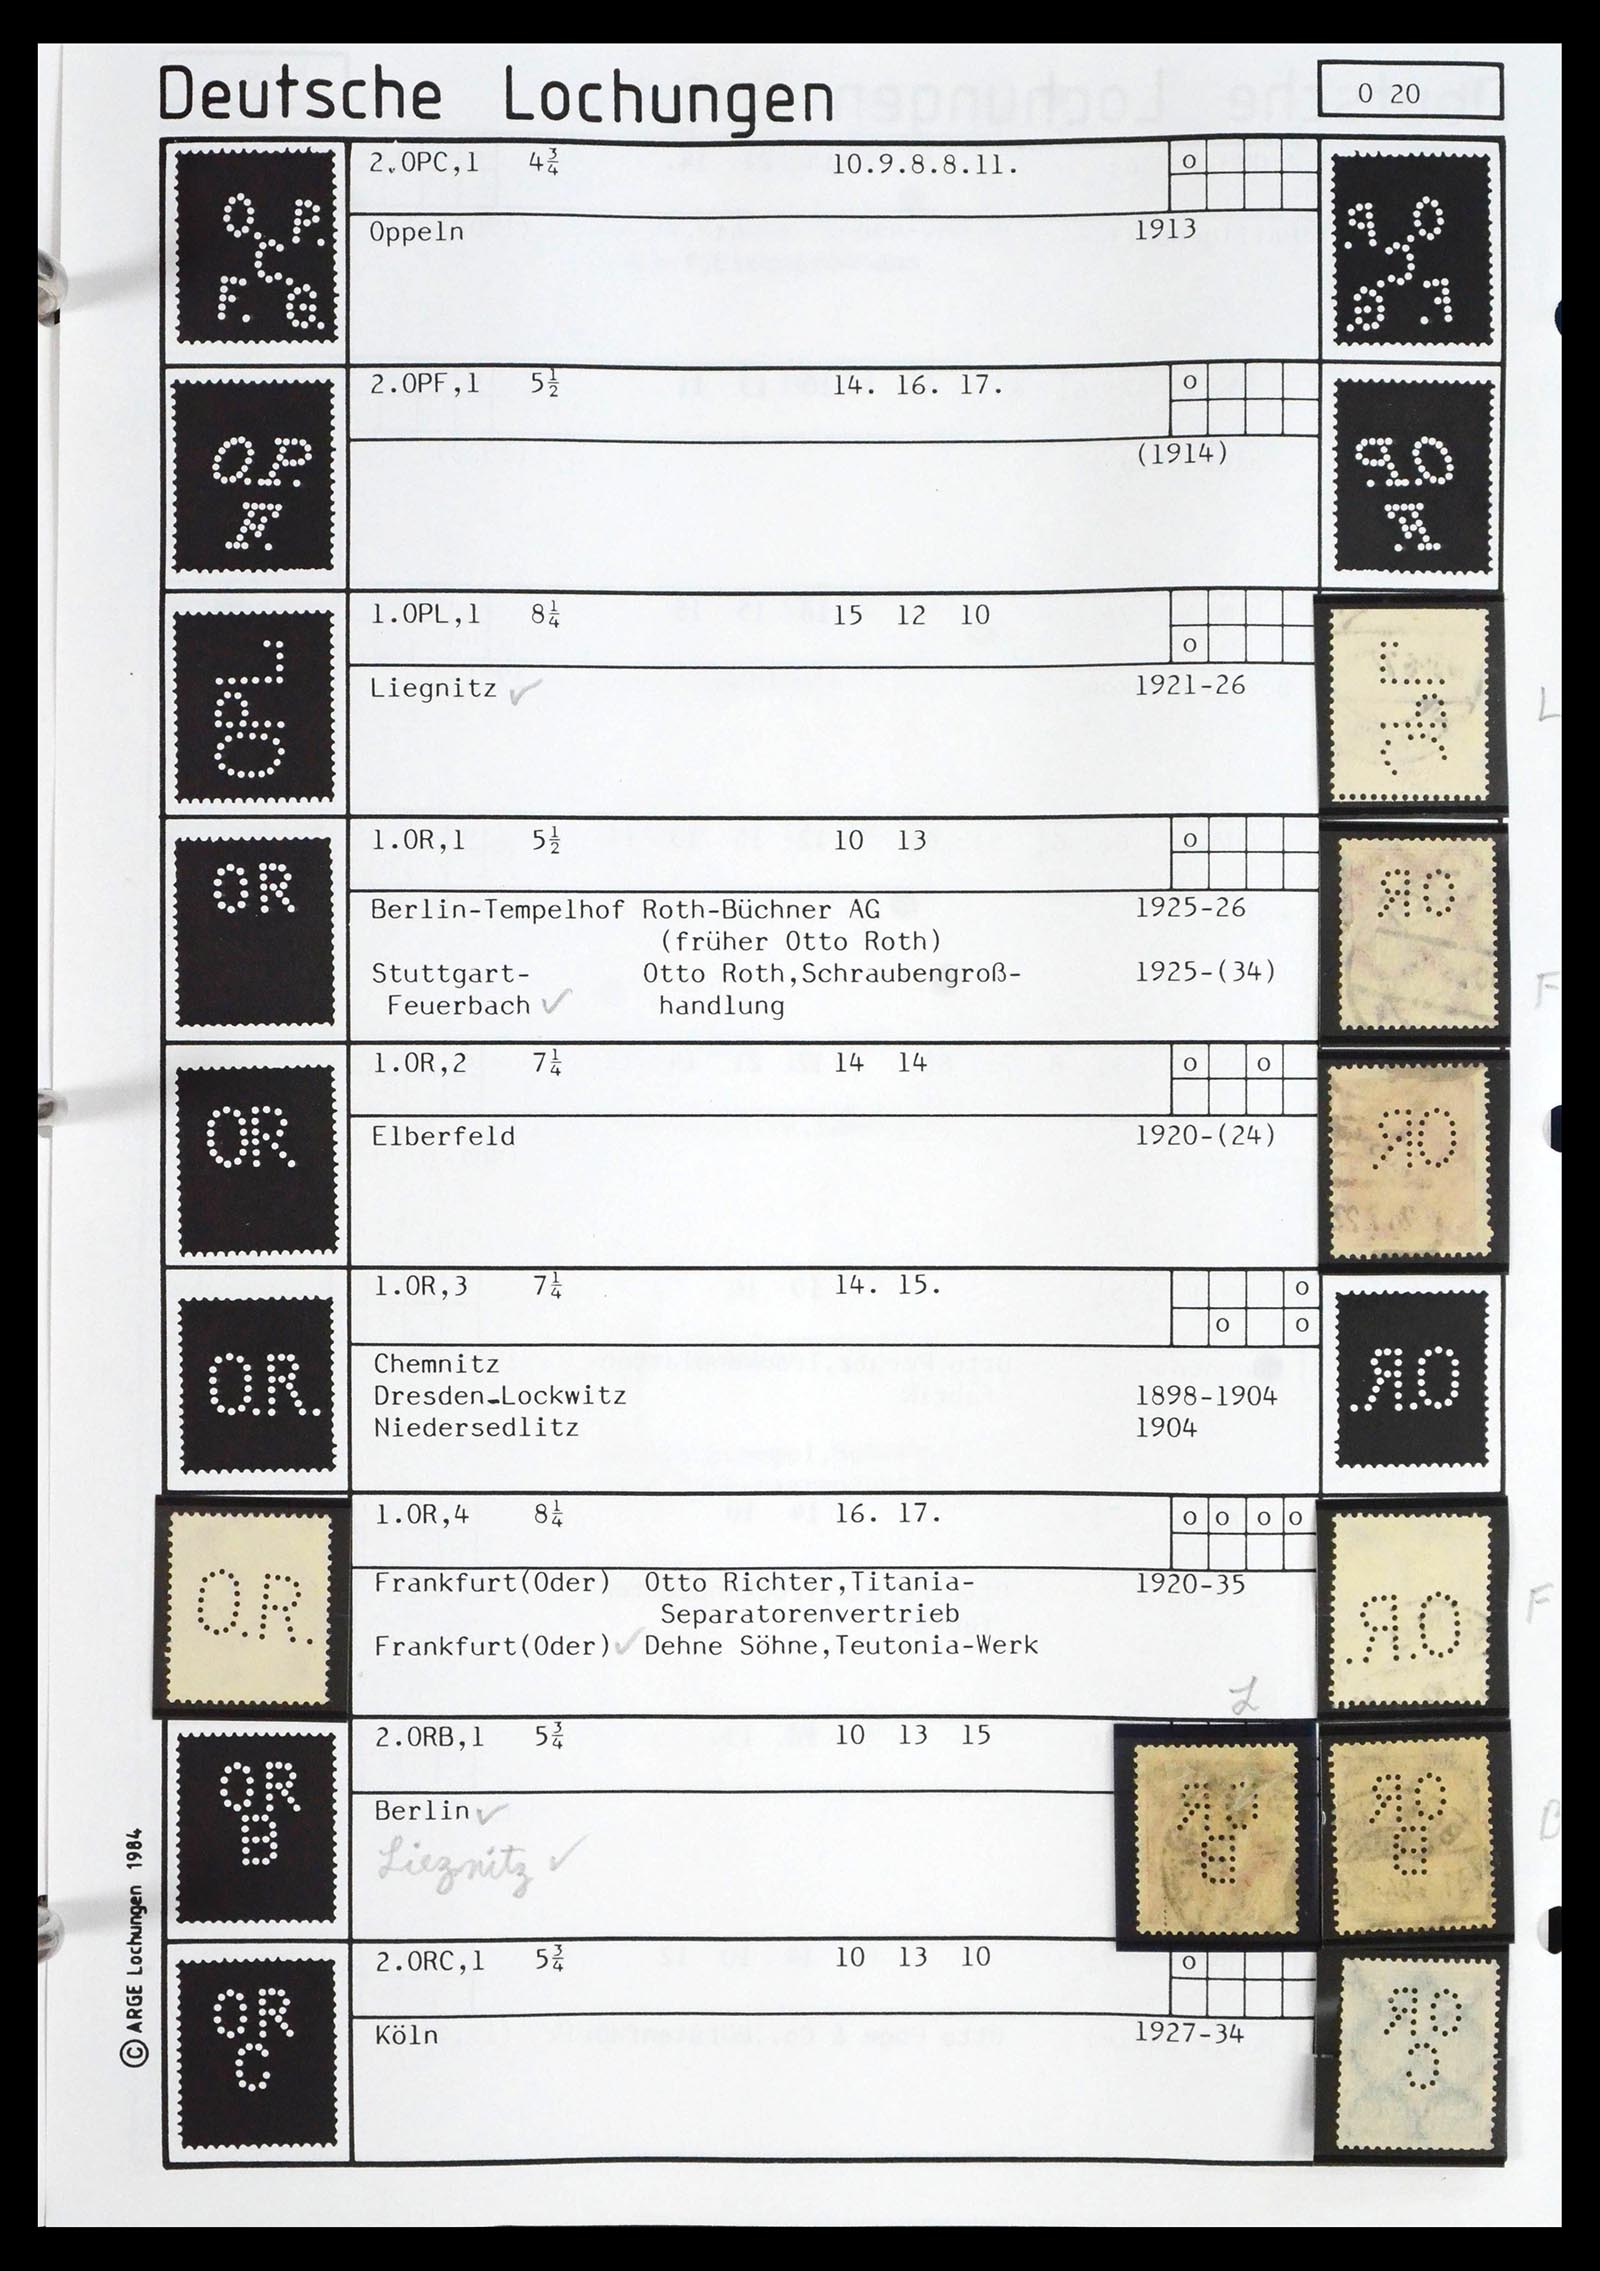 Deutsche Lochungen
O 20
2.OPC,1 4¾ 10.9.8.8.11. o
Oppeln 1913
O. P.
C
F. G.
2.OPF,1 5½ 14. 16. 17. o
(1914)
O.P.
F.
1.OPL,1 8¼ 15 12 10
o
Liegnitz ✓ 1921-26
OPL
L
1.OR,1 5½ 10 13 o
Berlin-Tempelhof Roth-Büchner AG 1925-26
(früher Otto Roth)
Stuttgart- Otto Roth,Schraubengroß- 1925-(34)
Feuerbach ✓ handlung
OR
F
1.OR,2 7¼ 14 14 o o
Elberfeld 1920-(24)
OR.
1.OR,3 7¼ 14. 15. o
o o
Chemnitz
Dresden-Lockwitz 1898-1904
Niedersedlitz 1904
O.R.
1.OR,4 8¼ 16. 17. o o o o
Frankfurt(Oder) Otto Richter,Titania- 1920-35
Separatorenvertrieb
Frankfurt(Oder) ✓ Dehne Söhne,Teutonia-Werk
O.R.
F
L
2.ORB,1 5¾ 10 13 15
Berlin ✓
Liegnitz ✓
OR
B
2.ORC,1 5¾ 10 13 10 o
Köln 1927-34
OR
C
© ARGE Lochungen 1984